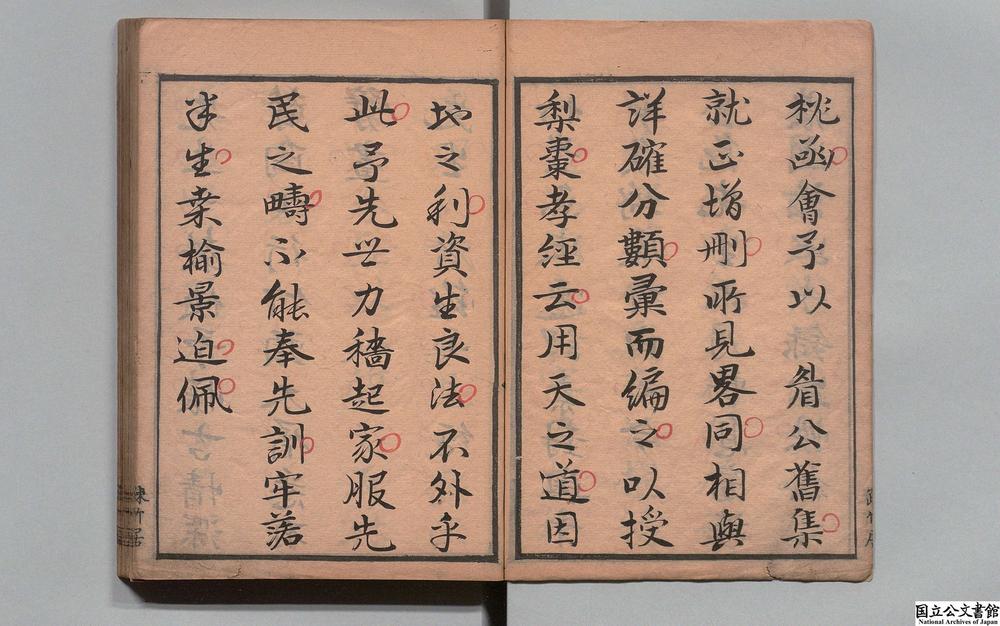 桃函會予以眉公舊集
就正增刪所見畧同相與
詳確分類彙而編之以授
梨棗孝經云用天之道因
地之利資生良法不外乎
此予先世力穡起家服先
民之疇不能奉先訓牢落
半生桑榆景迫佩
国立公文書館
National Archives of Japan